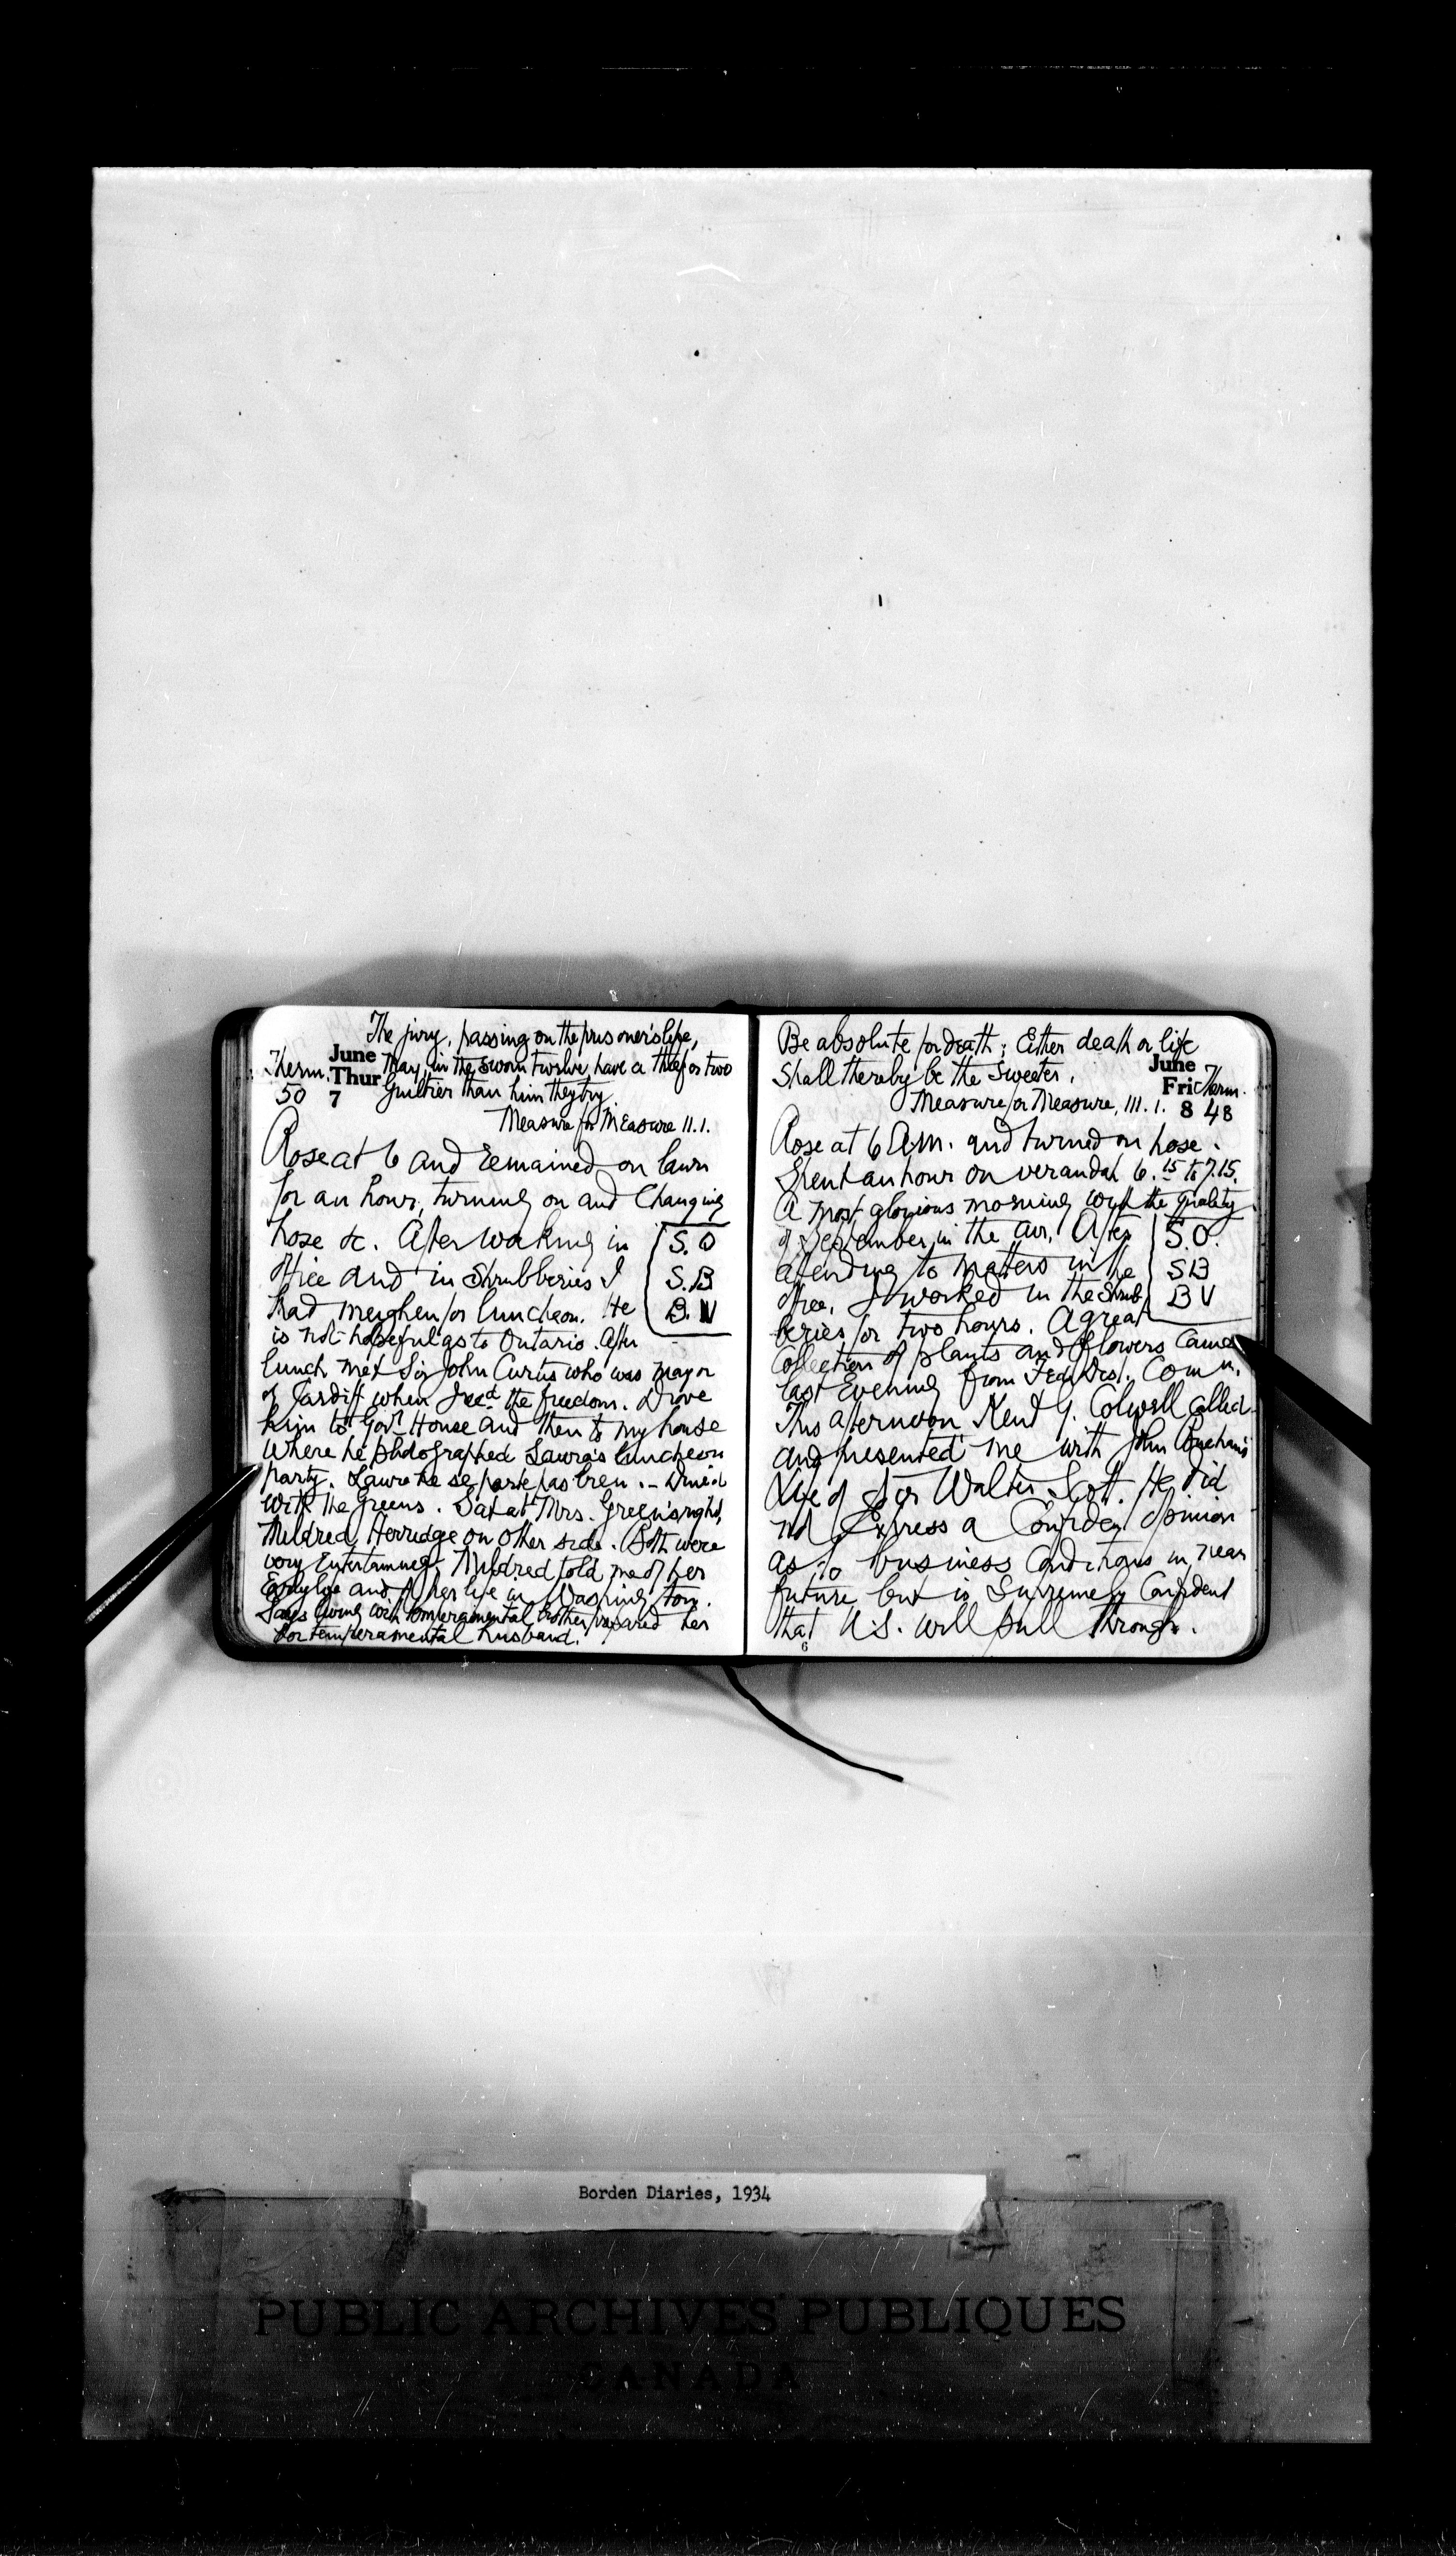 The jury, passing on the prisoner's life,
June
Therm. Thur May, in the sworn twelve, have a thief or two
50 7 Guiltier than him they try.
Measure for Measure II.1.
Rose at 6 and remained on lawn
for an hour, turning on and changing
hose &c. After working in S.O
office and in shrubberies I S.B
had Meighen for luncheon. He B.V
is not hopeful as to Ontario. After
lunch met Sir John Curtis who was mayor
of Cardiff when I recd the freedom. Drove
him to Govt House and then to my house
where he photographed Laura's luncheon
party. Laura he se porte pas bien. - Dined
with the Greens. Sat at Mrs. Green's right,
Mildred Herridge on other side. Both were
very entertaining. Mildred told me of her
Early life and of her life in Washington.
Says living with temperamental brother prepared her
for temperamental husband.
Be absolute for death; Either death or life
Shall thereby be the sweeter. June
Fri Therm.
Measure for Measure, III.1. 8 48
Rose at 6 A.M. and turned on hose.
Spent an hour on verandah 6.15 to 7.15.
A most glorious morning with the quality
of September in the air. After S.O.
attending to matters in the SB
office, I worked in the shrub BV
beries for two hours. A great
Collection of plants and flowers came
last Evening from Fed. Dist. Comn.
This afternoon Kent G. Colwell called
and presented me with John Buchan's
Life of Sir Walter Scott. He did
not Express a Confident opinion
as to business Conditions in near
future but is Supremely Confident
that U.S. will pull through.
6
Borden Diaries, 1934
PUBLIC ARCHIVES PUBLIQUES
CANADA